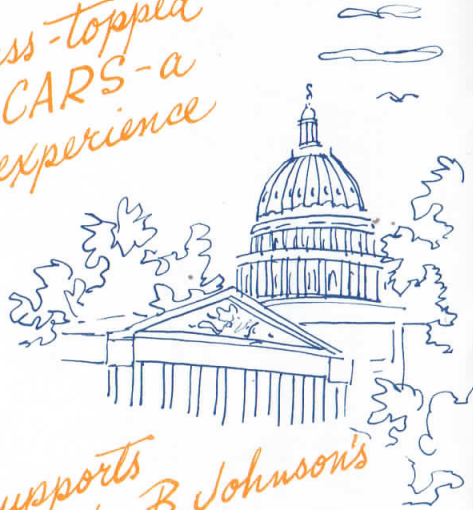 ss-topped
CARS-a
experience
upports
B Johnson's